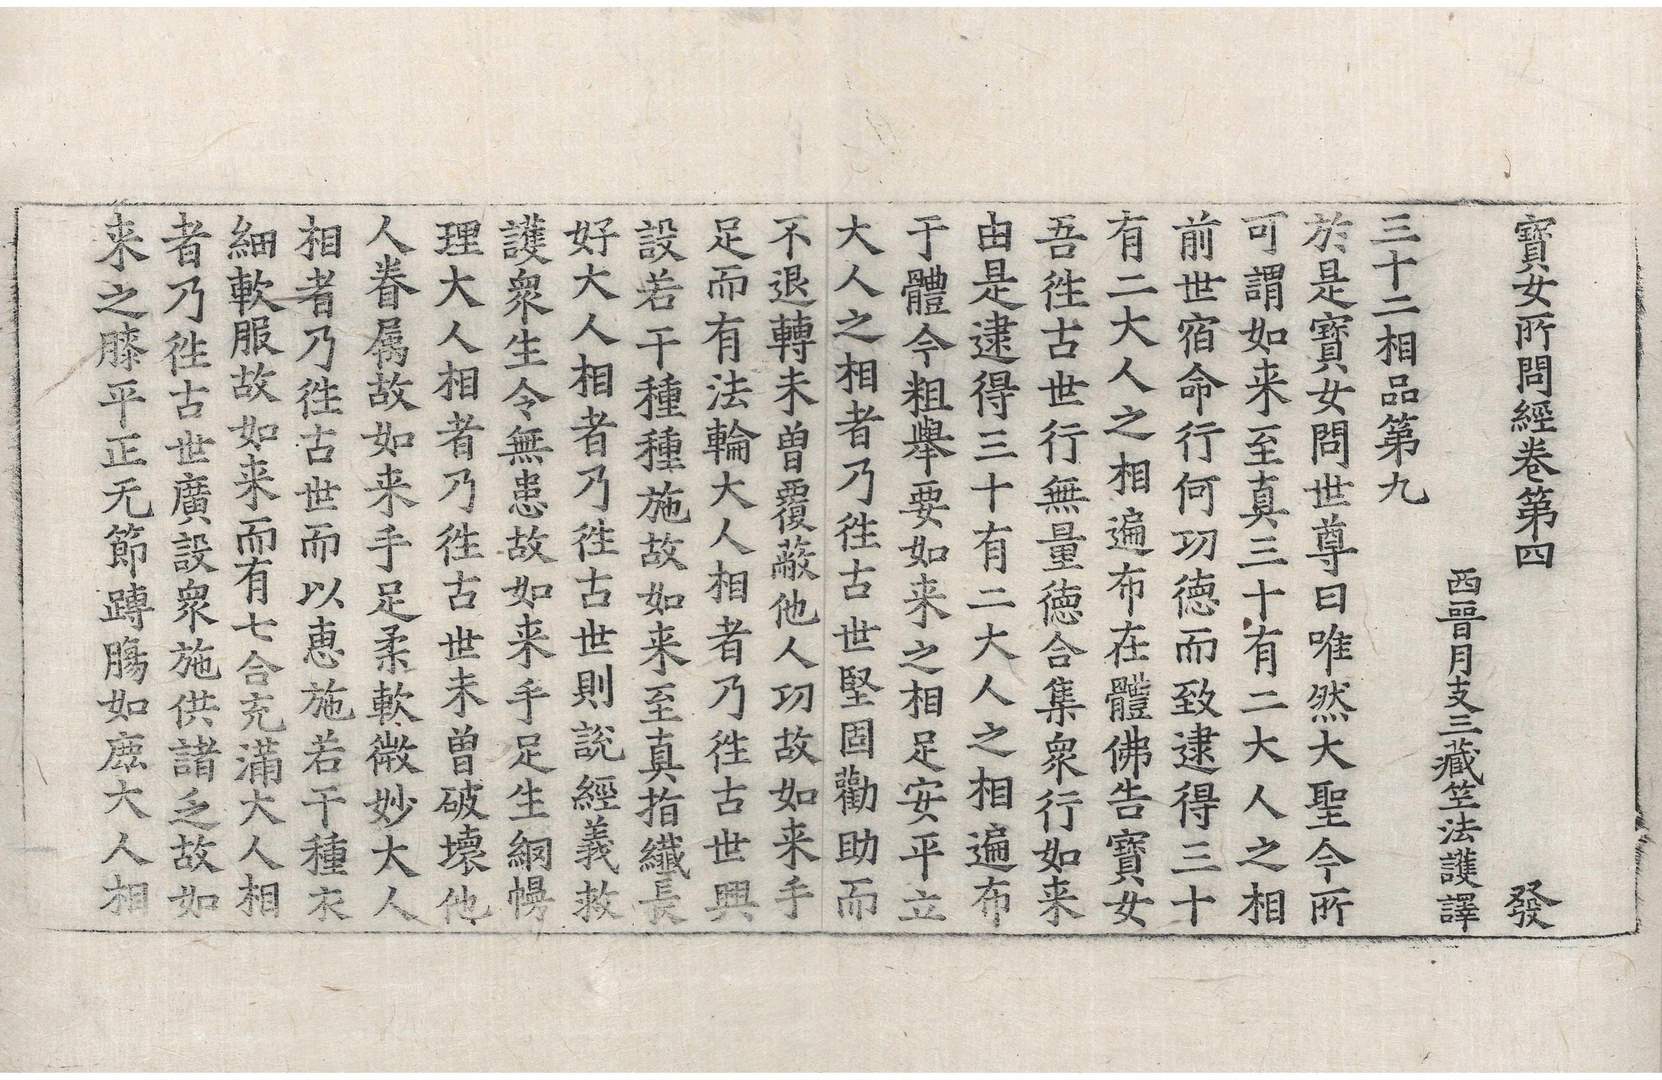 寶女所問經卷第四 發
西晉月支三藏竺法護譯
三十二相品第九
於是寶女問世尊曰唯然大聖今所
可謂如来至真三十有二大人之相
前世宿命行何功德而致逮得三十
有二大人之相遍布在體佛告寶女
吾徃古世行無量德合集衆行如来
由是逮得三十有二大人之相遍布
于體今粗舉要如来之相足安平立
大人之相者乃徃古世堅固勸助而
不退轉未曽覆蔽他人功故如来手
足而有法輪大人相者乃徃古世興
設若干種種施故如来至真指纖長
好大人相者乃徃古世則說經義救
護衆生令無患故如来手足生網幔
理大人相者乃徃古世未曽破壞他
人眷属故如来手足柔軟微妙大人
相者乃徃古世而以惠施若干種衣
細軟服故如来而有七合充滿大人相
者乃徃古世廣設衆施供諸乏故如
来之膝平正无節䏝膓如鹿大人相